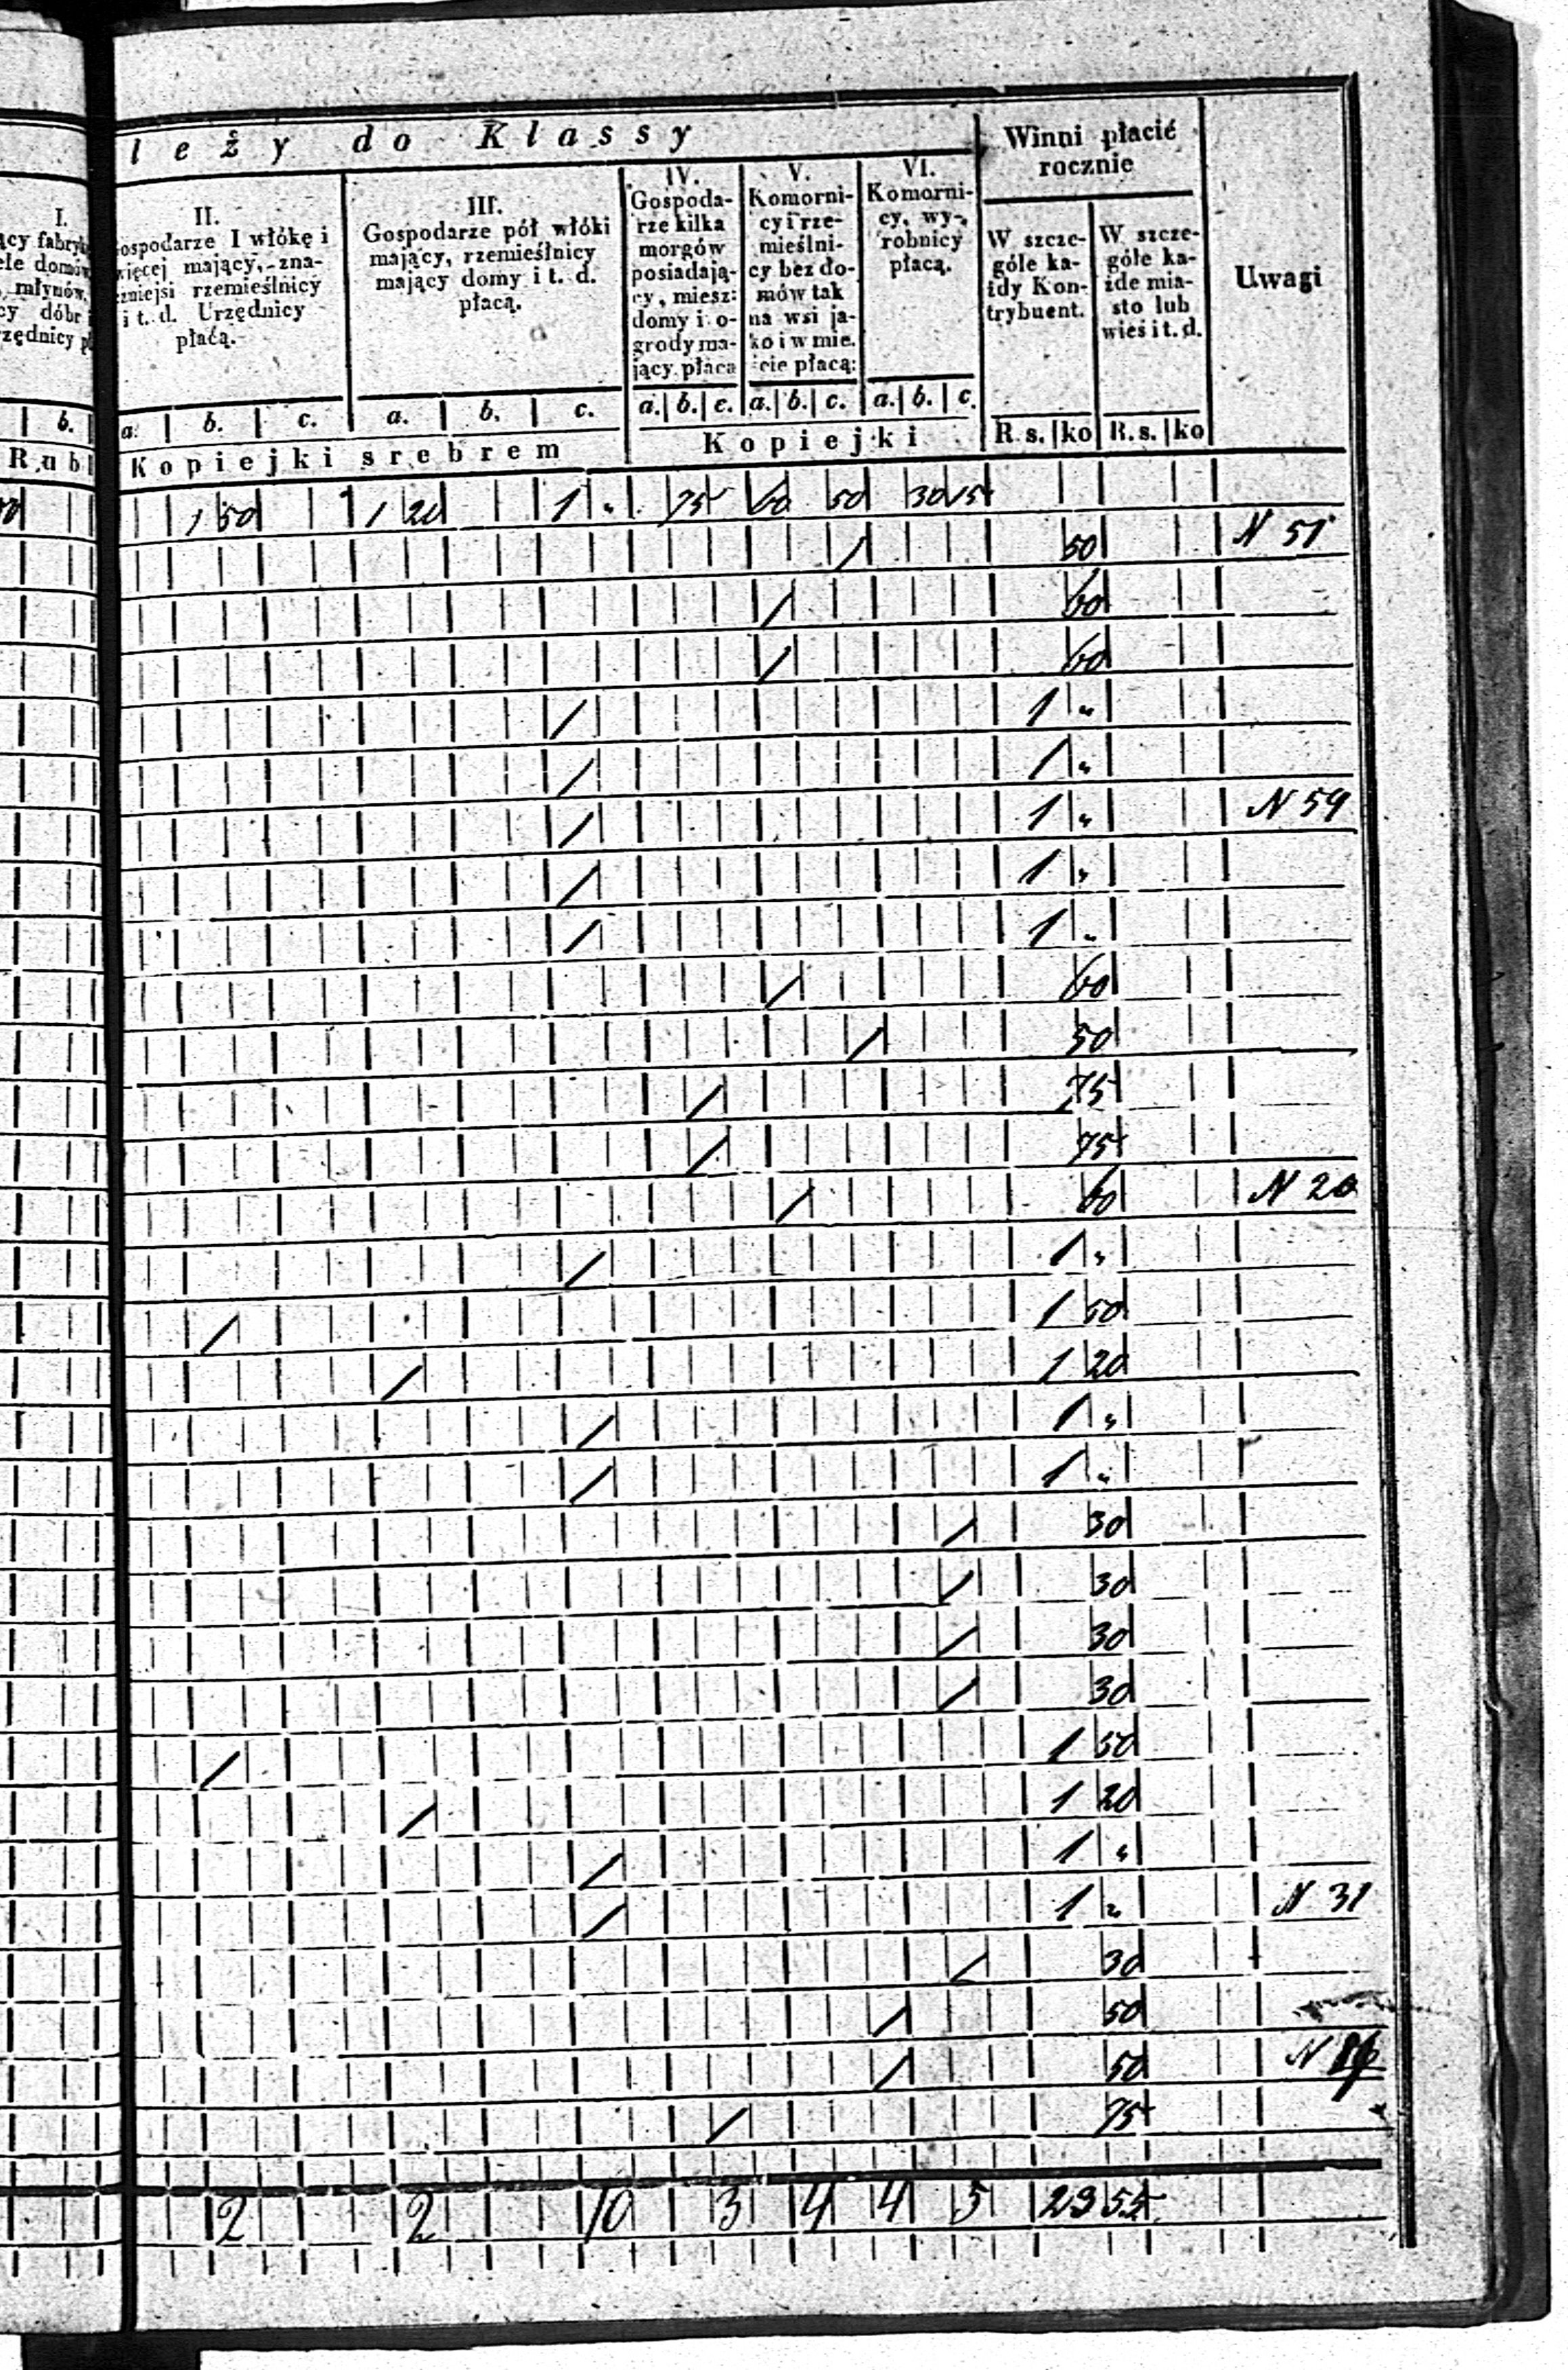 leży do Klassy
Winni płacić rocznie
Uwagi
I.
II.
ospodarze I włókę i
więcej mający, zna-
czniejsi rzemieślnicy
i t. d. Urzędnicy
płacą.
III.
Gospodarze pół włóki
mający, rzemieślnicy
mający domy i t. d.
płacą.
IV.
Gospoda-
rze kilka
morgów
posiadają-
cy, miesz:
domy i o-
grody ma-
jący płacą
V.
Komorni-
cy i rze-
mieślni-
cy bez do-
mów tak
na wsi ja-
ko i w mie.
ście płacą:
VI.
Komorni-
cy, wy-
robnicy
płacą.
W szcze-
góle ka-
żdy Kon-
trybuent.
W szcze-
góle ka-
żde mia-
sto lub
wieś i t. d.
b. a. b. c. a. b. c. a. b. c. a. b. c. a. b. c.
Rubl Kopiejki srebrem Kopiejki R s. ko R. s. ko
1 50 1 20 1 " 75 60 50 30 15
/ 50 N 51
/ 60
/ 60
/ 1 "
/ 1 "
/ 1 " N 59
/ 1 "
/ 1 "
/ 60
/ 50
/ 75
/ 75
/ 60 N 20
/ 1 "
/ 1 50
/ 1 20
/ 1 "
/ 1 "
/ 30
/ 30
/ 30
/ 30
/ 1 50
/ 1 20
/ 1 "
/ 1 " N 31
/ 30
/ 50
/ 50 N
/ 75
2 2 10 3 4 4 5 23 55